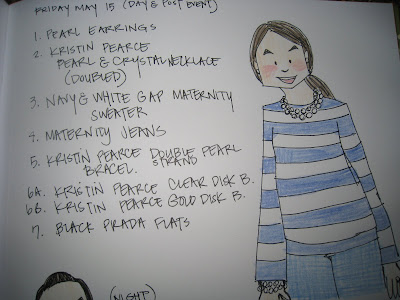 FRIDAY MAY 15 (DAY & POST EVENT)
1. PEARL EARRINGS
2. KRISTIN PEARCE
PEARL & CRYSTAL NECKLACE
(DOUBLED)
3. NAVY & WHITE GAP MATERNITY
SWEATER
4. MATERNITY JEANS
5. KRISTIN PEARCE DOUBLE PEARL
BRACEL. STRAND
6A. KRISTIN PEARCE CLEAR DISK B.
6B. KRISTIN PEARCE GOLD DISK B.
7. BLACK PRADA FLATS
(NIGHT)